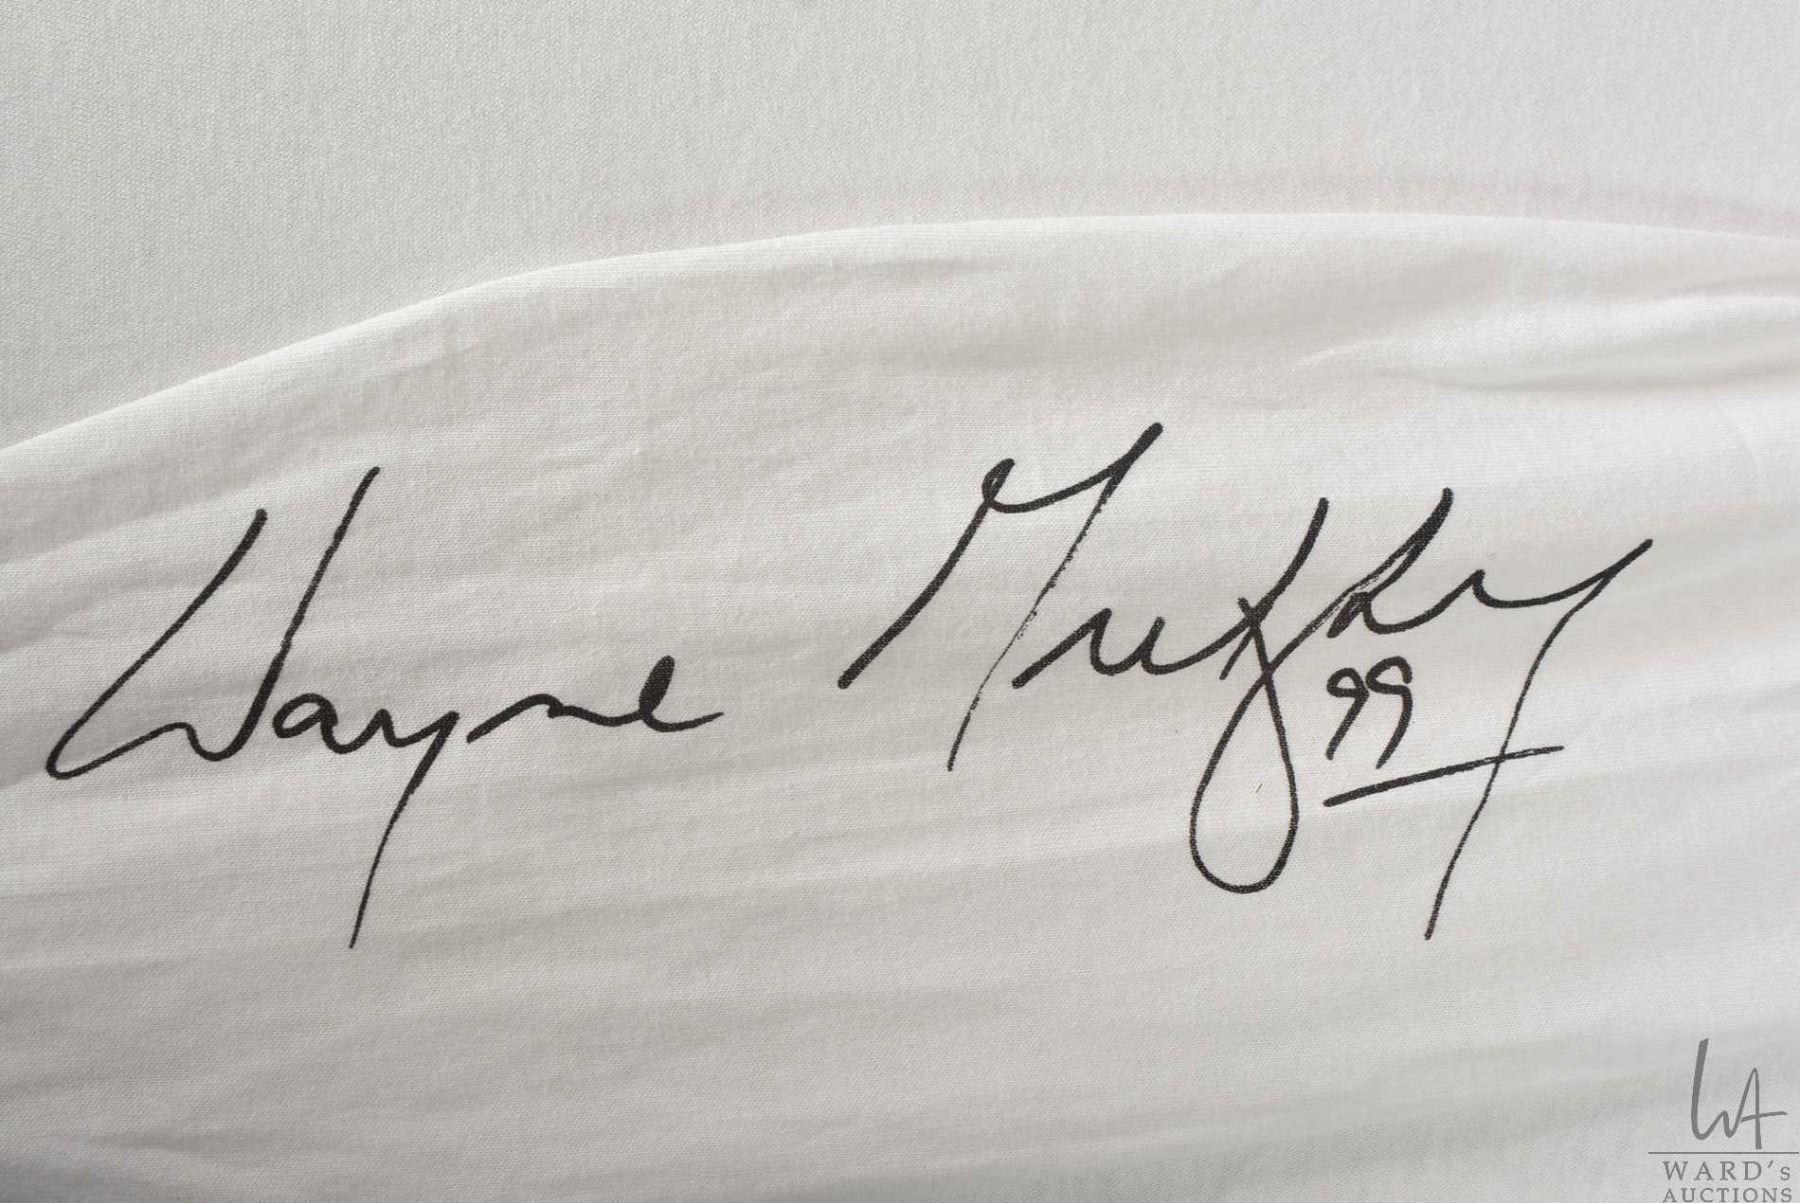 Wayne Murphy
99
WA
WARD's
AUCTIONS